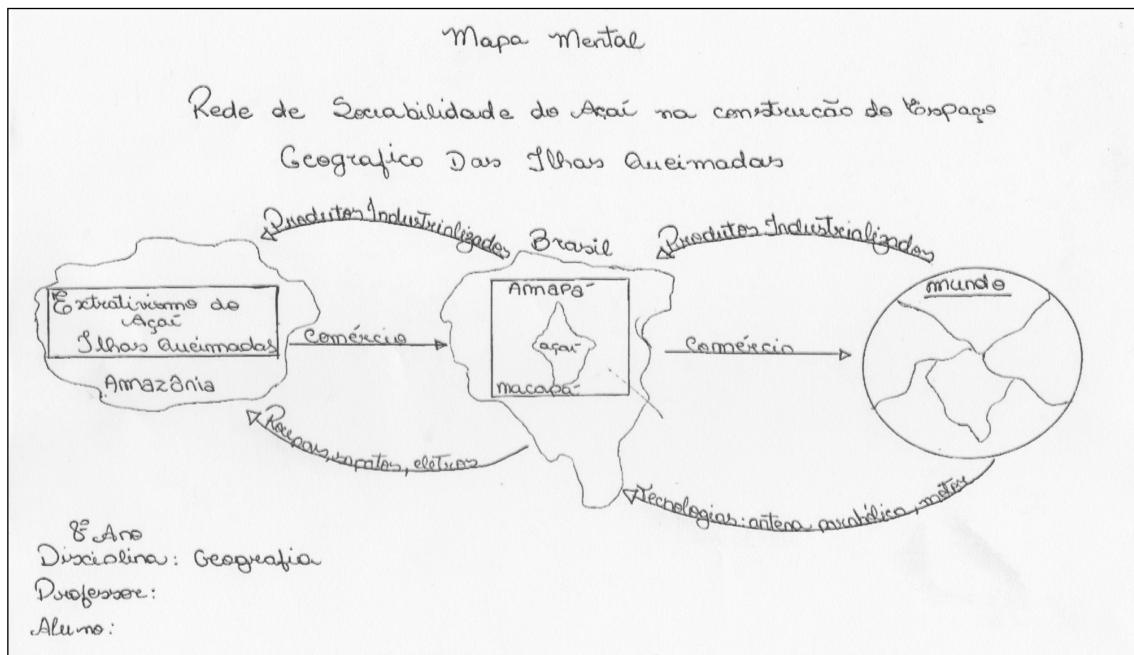 Mapa Mental
Rede de Sociabilidade do Açaí na construção do Espaço
Geografico Das Ilhas Queimadas
Produtos Industrializados
Brasil
Produtos Industrializados
Extrativismo do
Açaí
Ilhas Queimadas
Amazônia
Comércio
Amapá
açaí
macapá
Comércio
mundo
Roupas, sapatos, eletros
Tecnologias: antena parabólica, motor
8º Ano
Disciplina: Geografia
Professor:
Aluno: